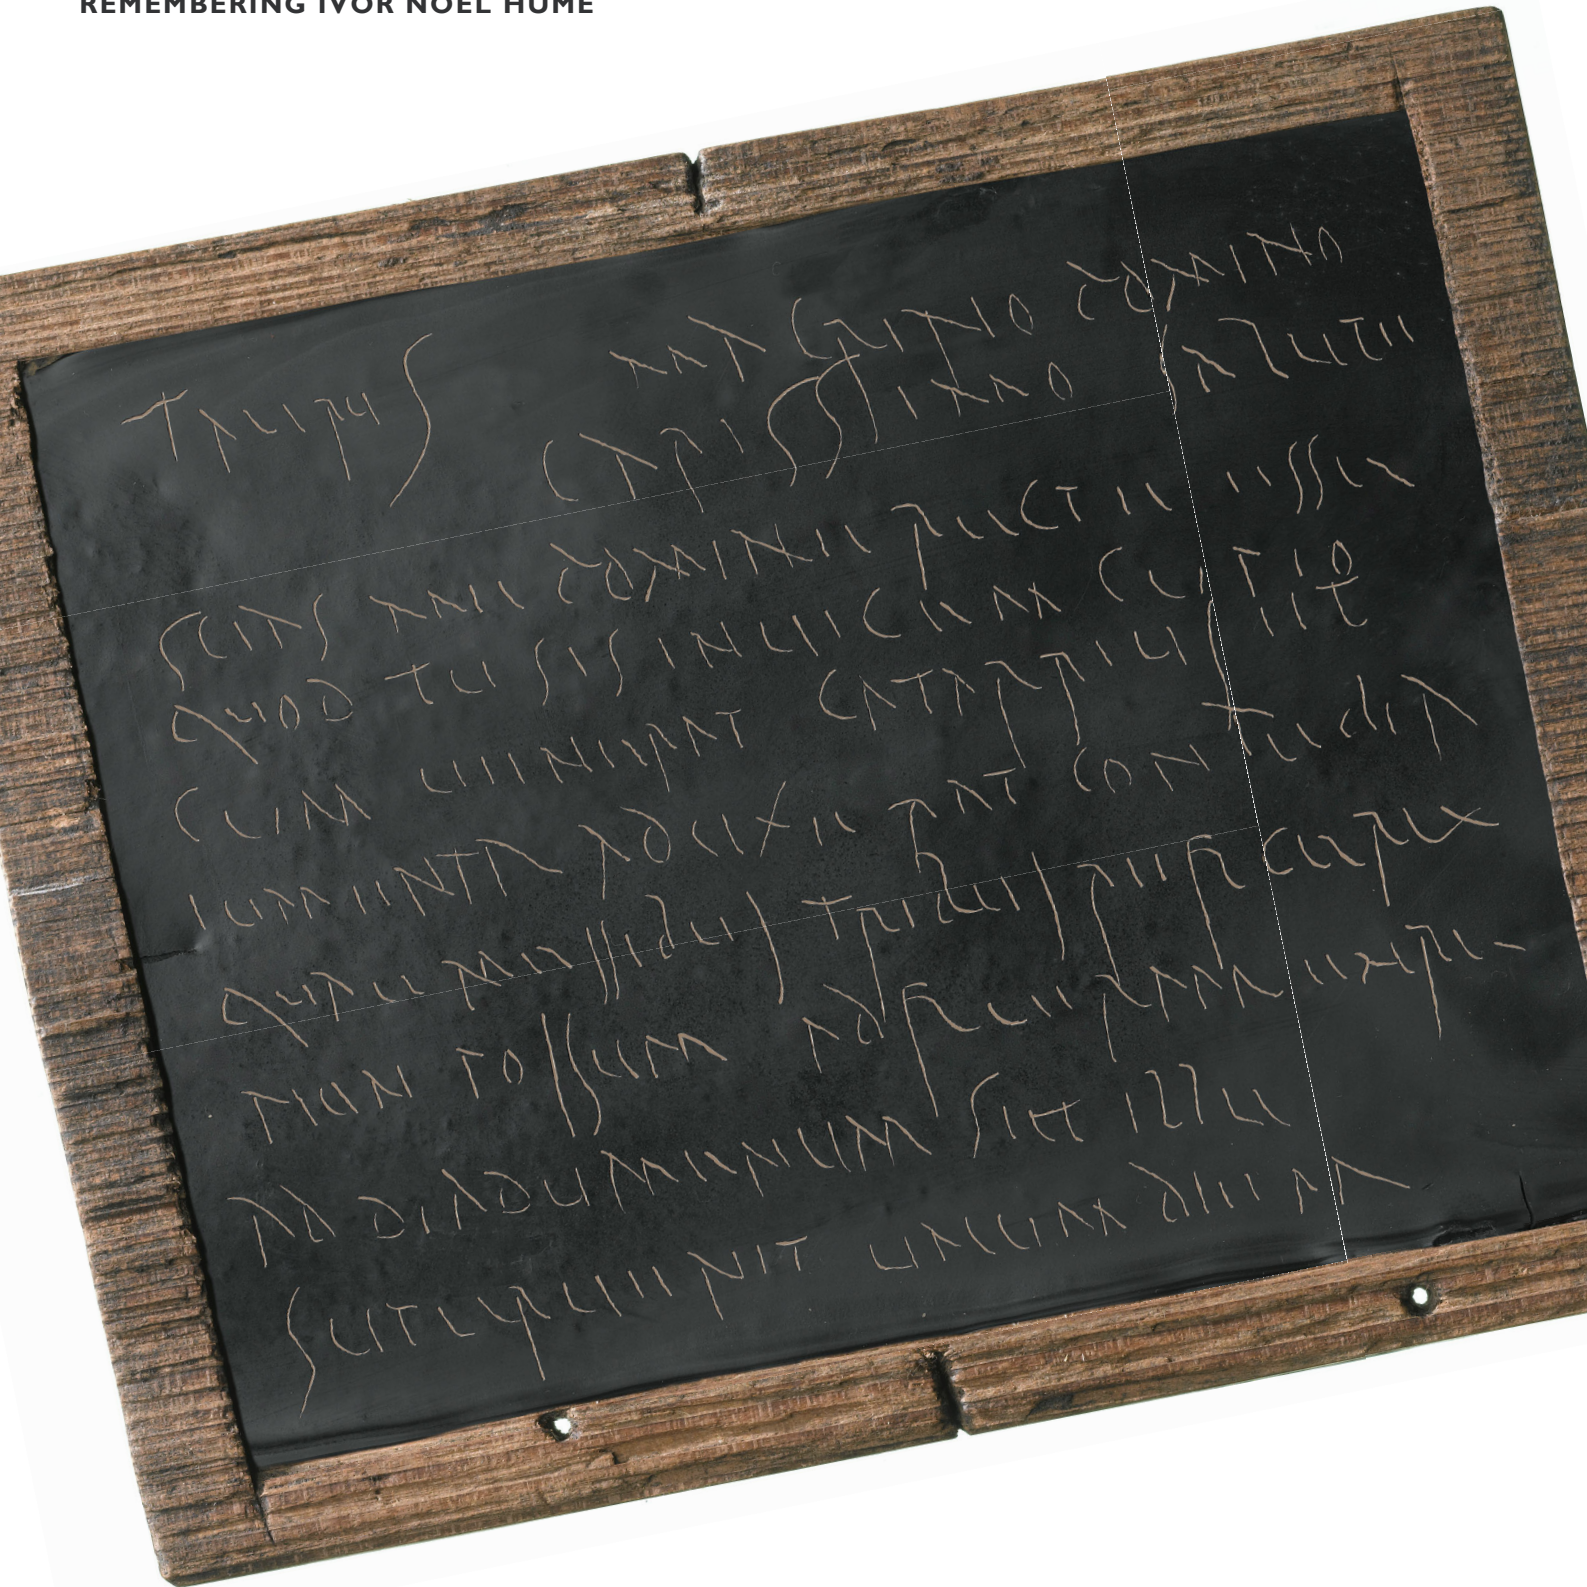 REMEMBERING IVOR NOËL HUME
Taurus Macrino domino
carissimo salutem
scias me domine recte esse
quod tu sis inuicem cupio
cum uenerat Catarrius et
iumenta aduxerat
que messibus tribus reficere
non possum adfueram
ad Diadumenum set ille
superuenit unum diem